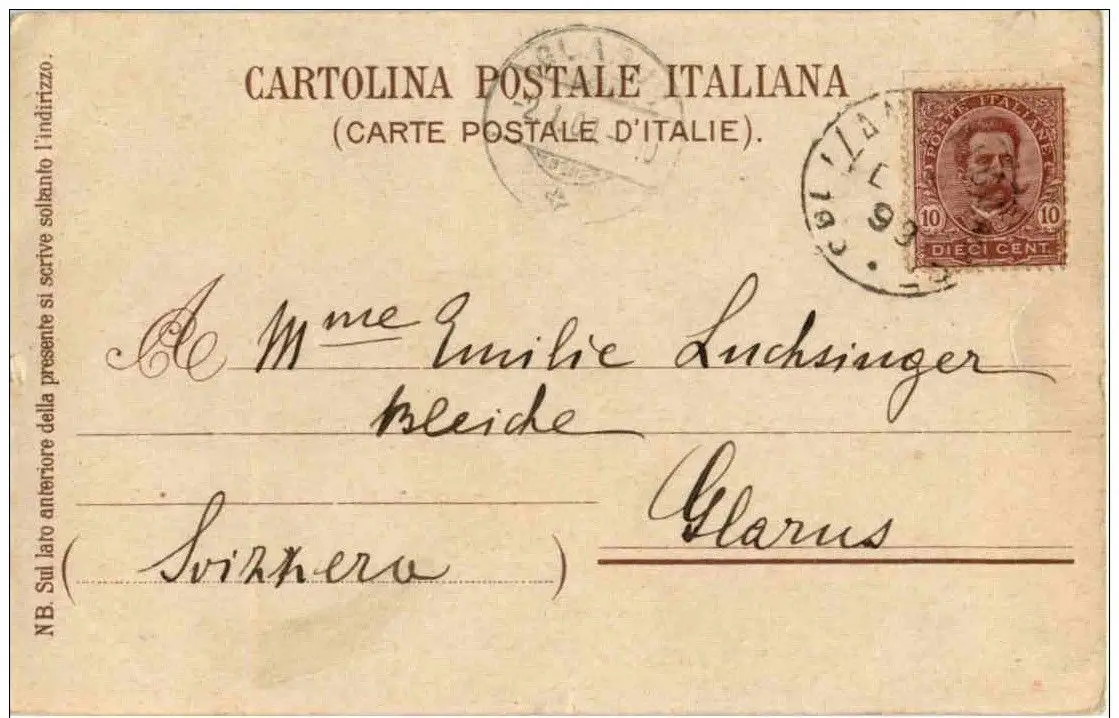 CARTOLINA POSTALE ITALIANA
(CARTE POSTALE D'ITALIE).
POSTE ITALIANE
10 10
DIECI CENT.
A Mme Emilie Luchsinger
Bleiche
Glarus
(Svizzera)
NB. Sul lato anteriore della presente si scrive soltanto l'indirizzo.